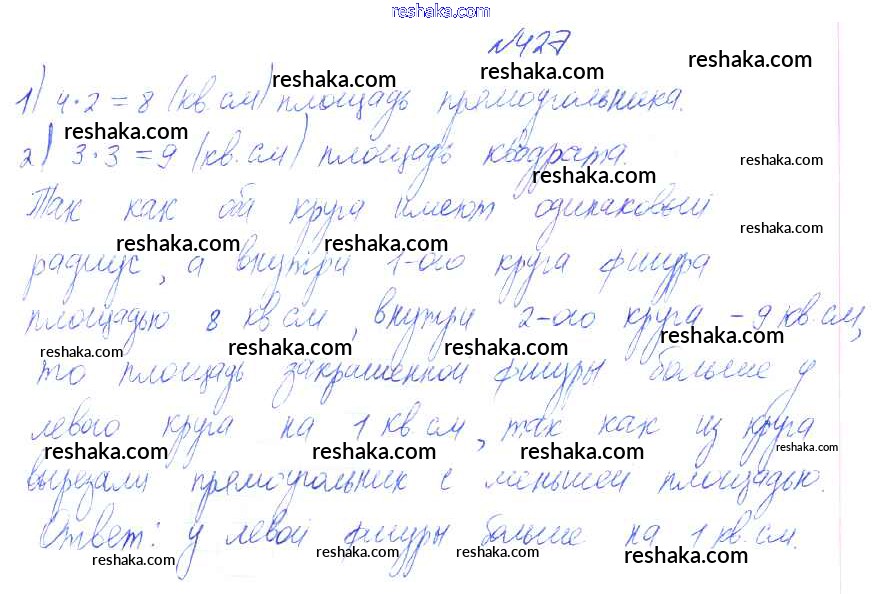 reshaka.com
№427
reshaka.com
reshaka.com
reshaka.com
1) 4·2=8 (кв.см) площадь прямоугольника.
reshaka.com
2) 3·3=9 (кв.см) площадь квадрата.
reshaka.com
reshaka.com
Так как оба круга имеют одинаковый
reshaka.com
reshaka.com
reshaka.com
радиус, а внутри 1-ого круга фигура
площадью 8 кв см, внутри 2-ого круга - 9 кв.см,
reshaka.com
reshaka.com
reshaka.com
reshaka.com
то площадь закрашенной фигуры больше у
левого круга на 1 кв.см, так как из круга
reshaka.com
reshaka.com
reshaka.com
reshaka.com
вырезали прямоугольник с меньшей площадью.
Ответ: у левой фигуры больше на 1 кв.см.
reshaka.com
reshaka.com
reshaka.com
reshaka.com